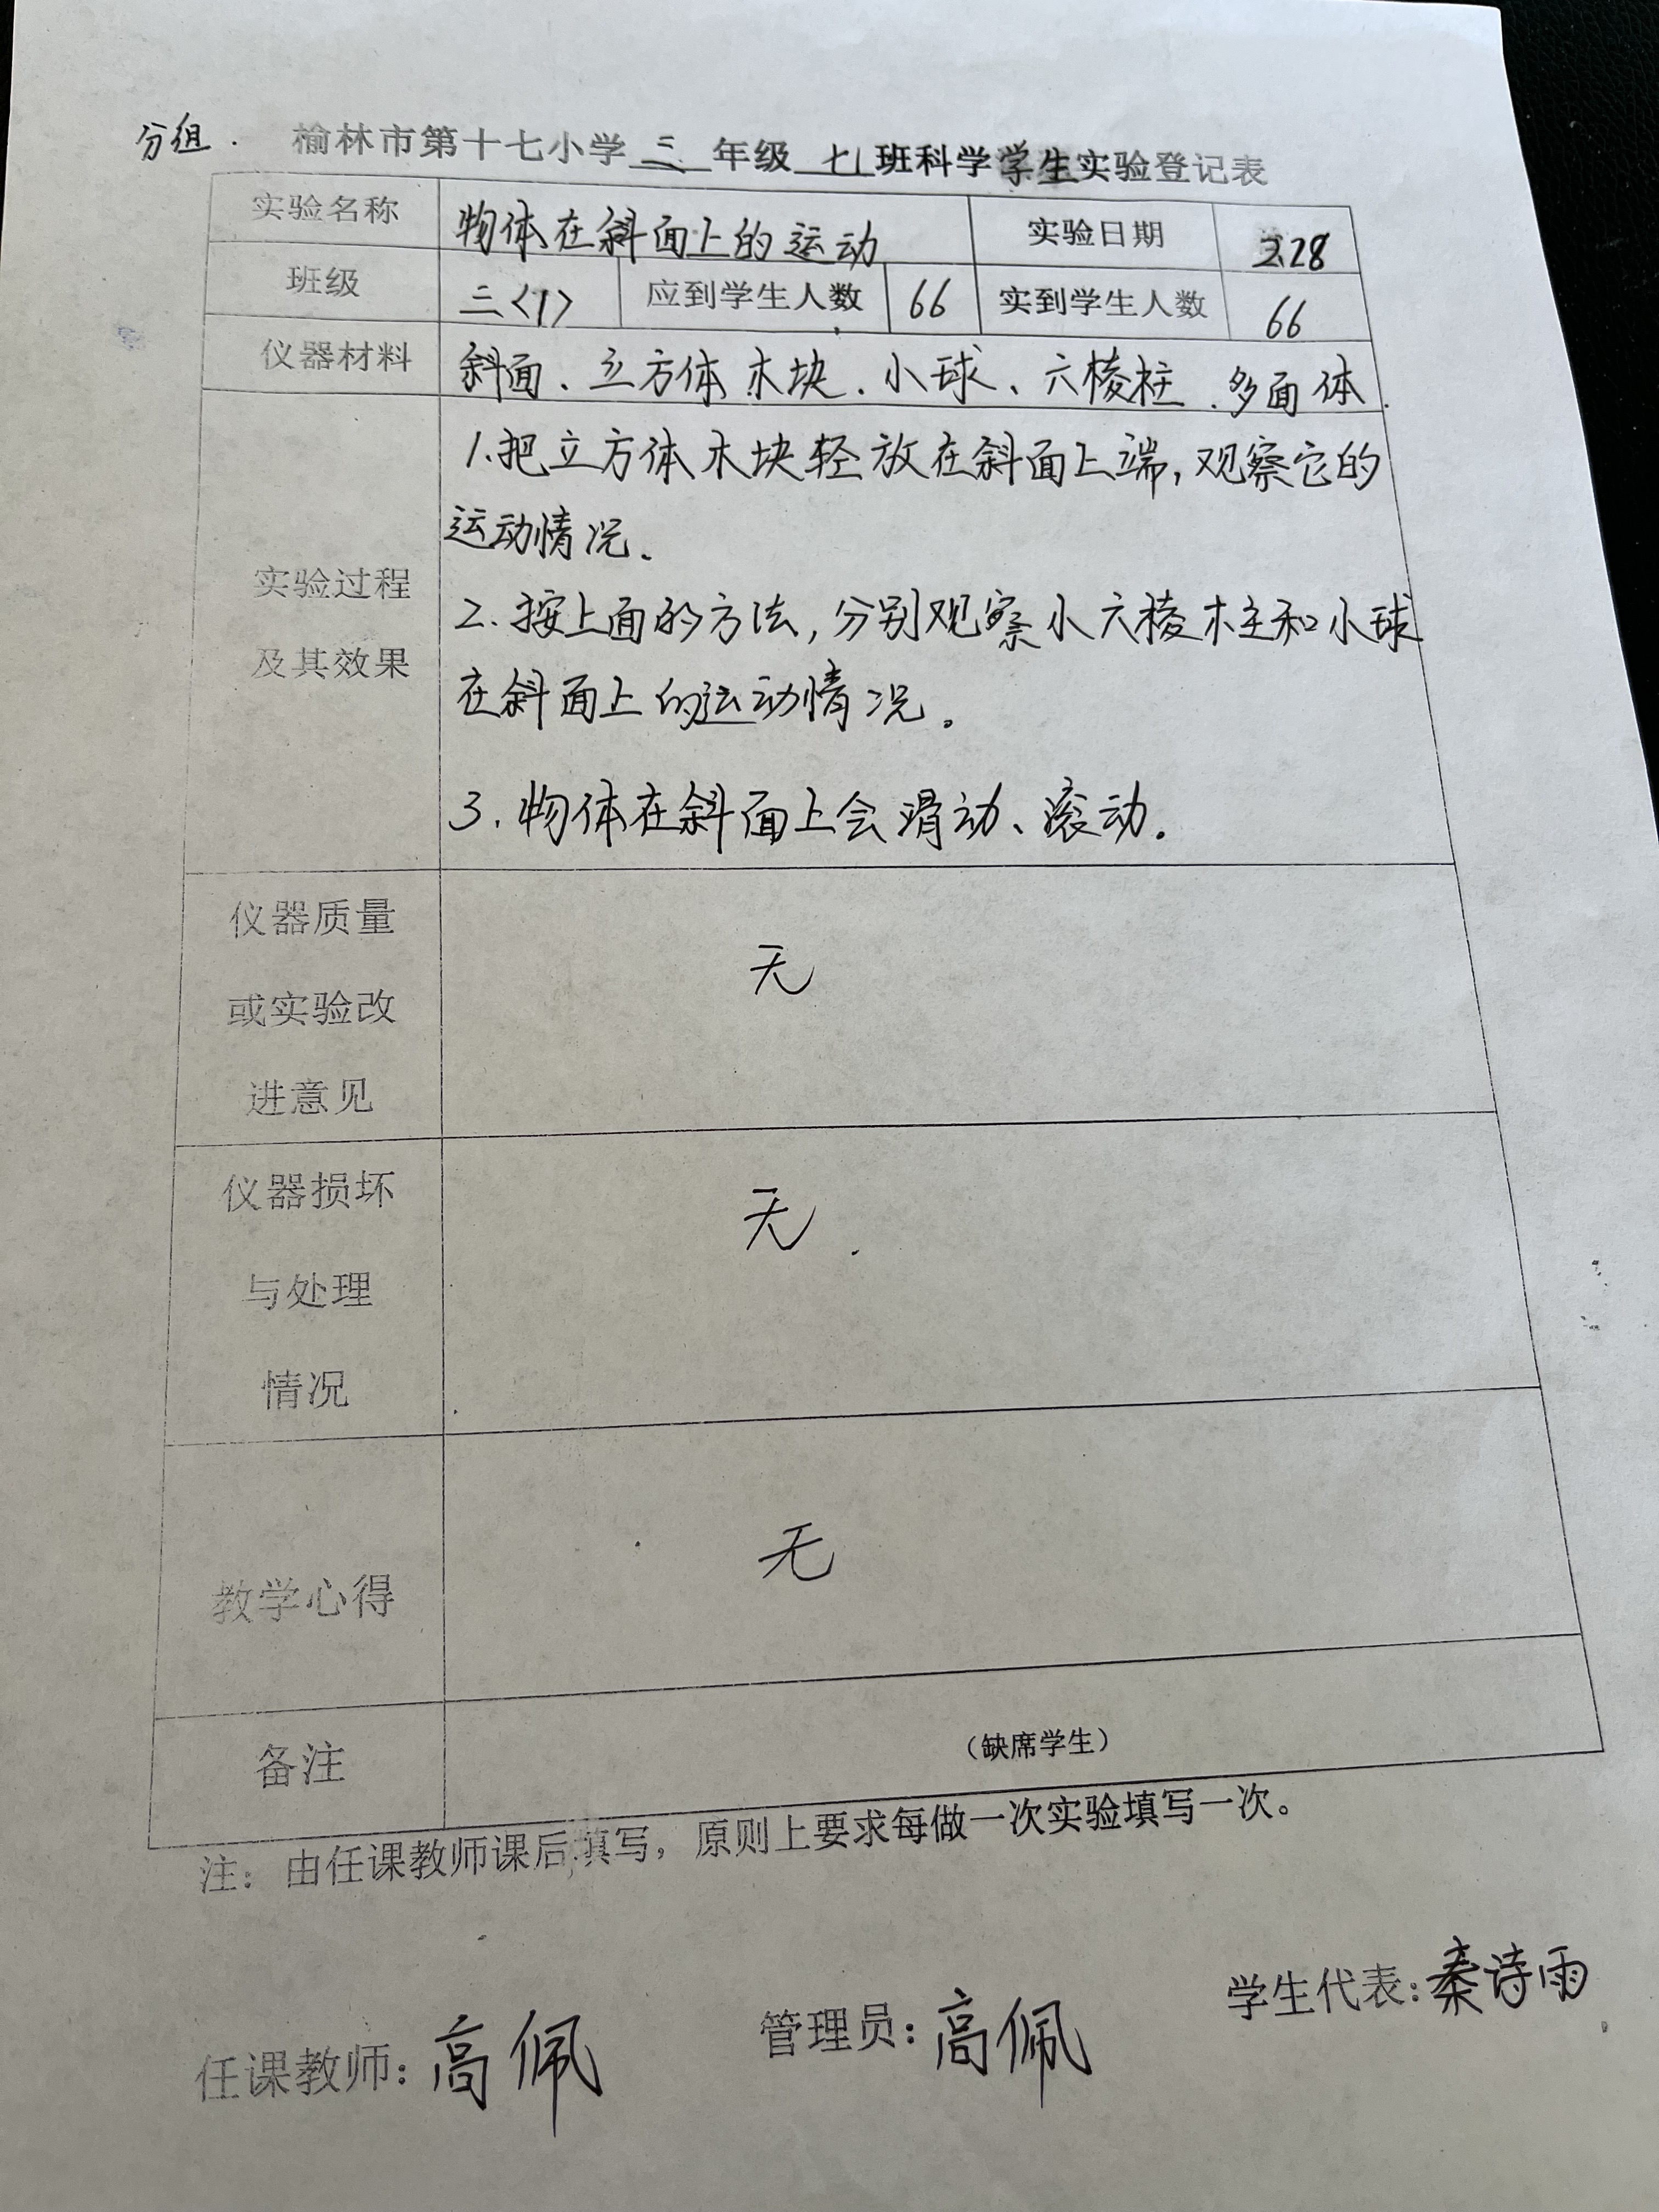 分组.
榆林市第十七小学 三 年级 七 班科学学生实验登记表
实验名称 物体在斜面上的运动 实验日期 3.28
班级 三〈1〉 应到学生人数 66 实到学生人数 66
仪器材料 斜面、立方体木块、小球、六棱柱、多面体.
实验过程
及其效果
1.把立方体木块轻放在斜面上端,观察它的
运动情况.
2.按上面的方法,分别观察小六棱柱和小球
在斜面上的运动情况。
3.物体在斜面上会滑动、滚动.
仪器质量
或实验改
进意见
无
仪器损坏
与处理
情况
无.
教学心得 无
备注 (缺席学生)
注：由任课教师课后填写，原则上要求每做一次实验填写一次。
任课教师: 高佩 管理员: 高佩 学生代表: 秦诗雨